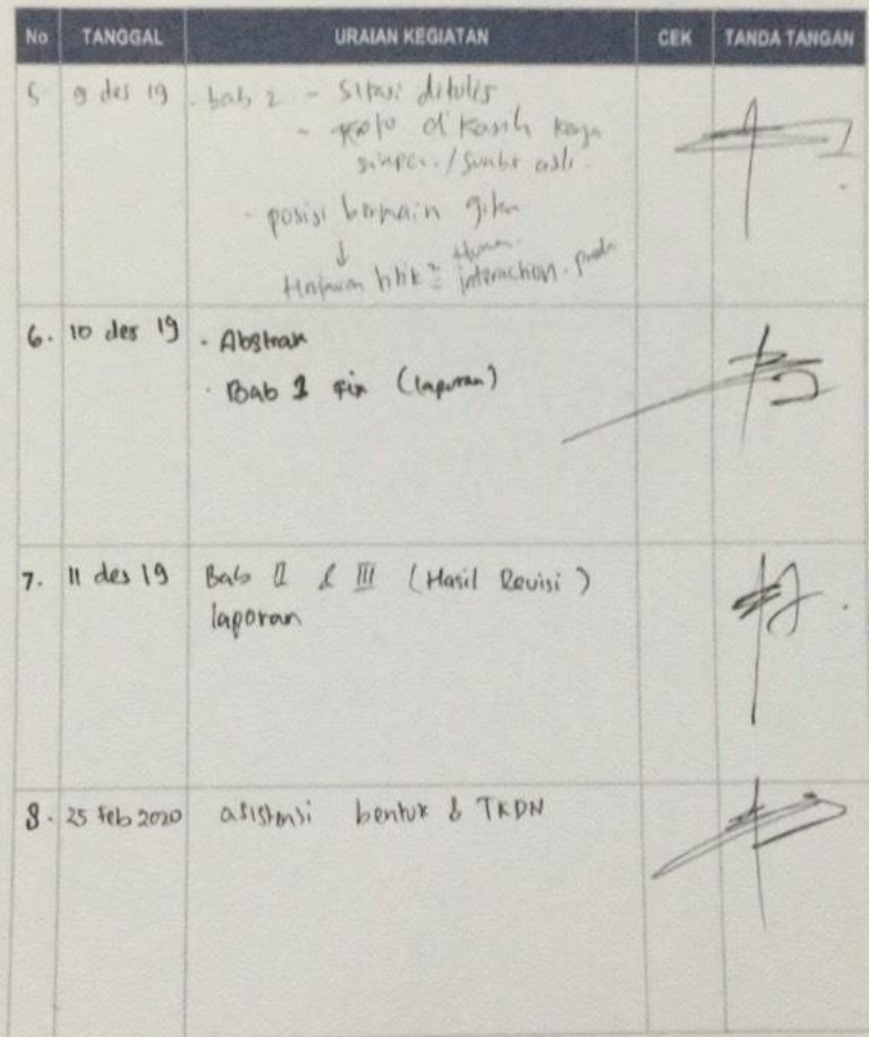 No TANGGAL URAIAN KEGIATAN CEK TANDA TANGAN
5 9 des 19 . bab 2 - Sitasi ditulis
- di kasih
/ asli
- posisi bermain gitar
↓ Human
titik² interaction
6. 10 des 19 . Abstrak
. Bab 1 fix (laporan)
7. 11 des 19 Bab II & III (Hasil Revisi)
laporan
8. 25 feb 2020 asistensi bentuk & TKDN